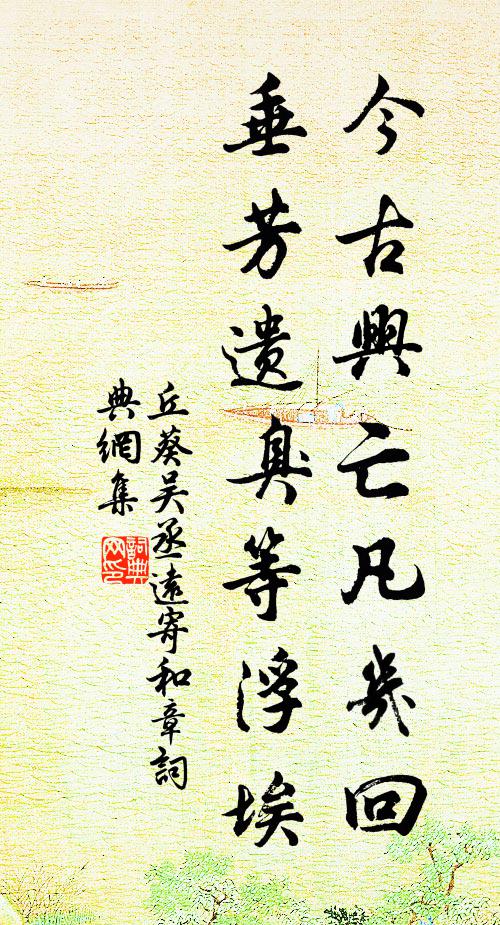 今古興亡凡幾回
垂芳遺臭等浮埃
丘葵吴丞遠寄和章詞
典網集
詞典網印